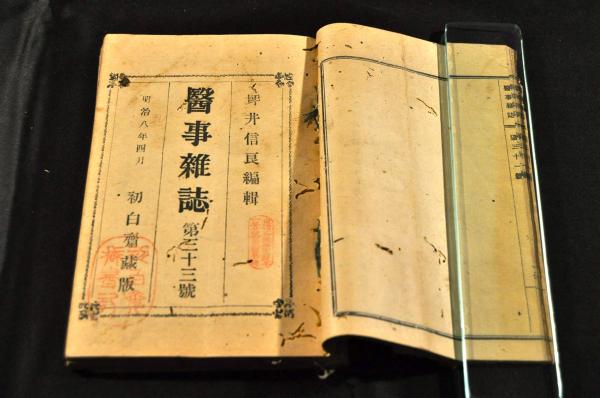 坪井信良編輯
醫事雜誌 第三十三號
明治八年四月
初白齋藏版